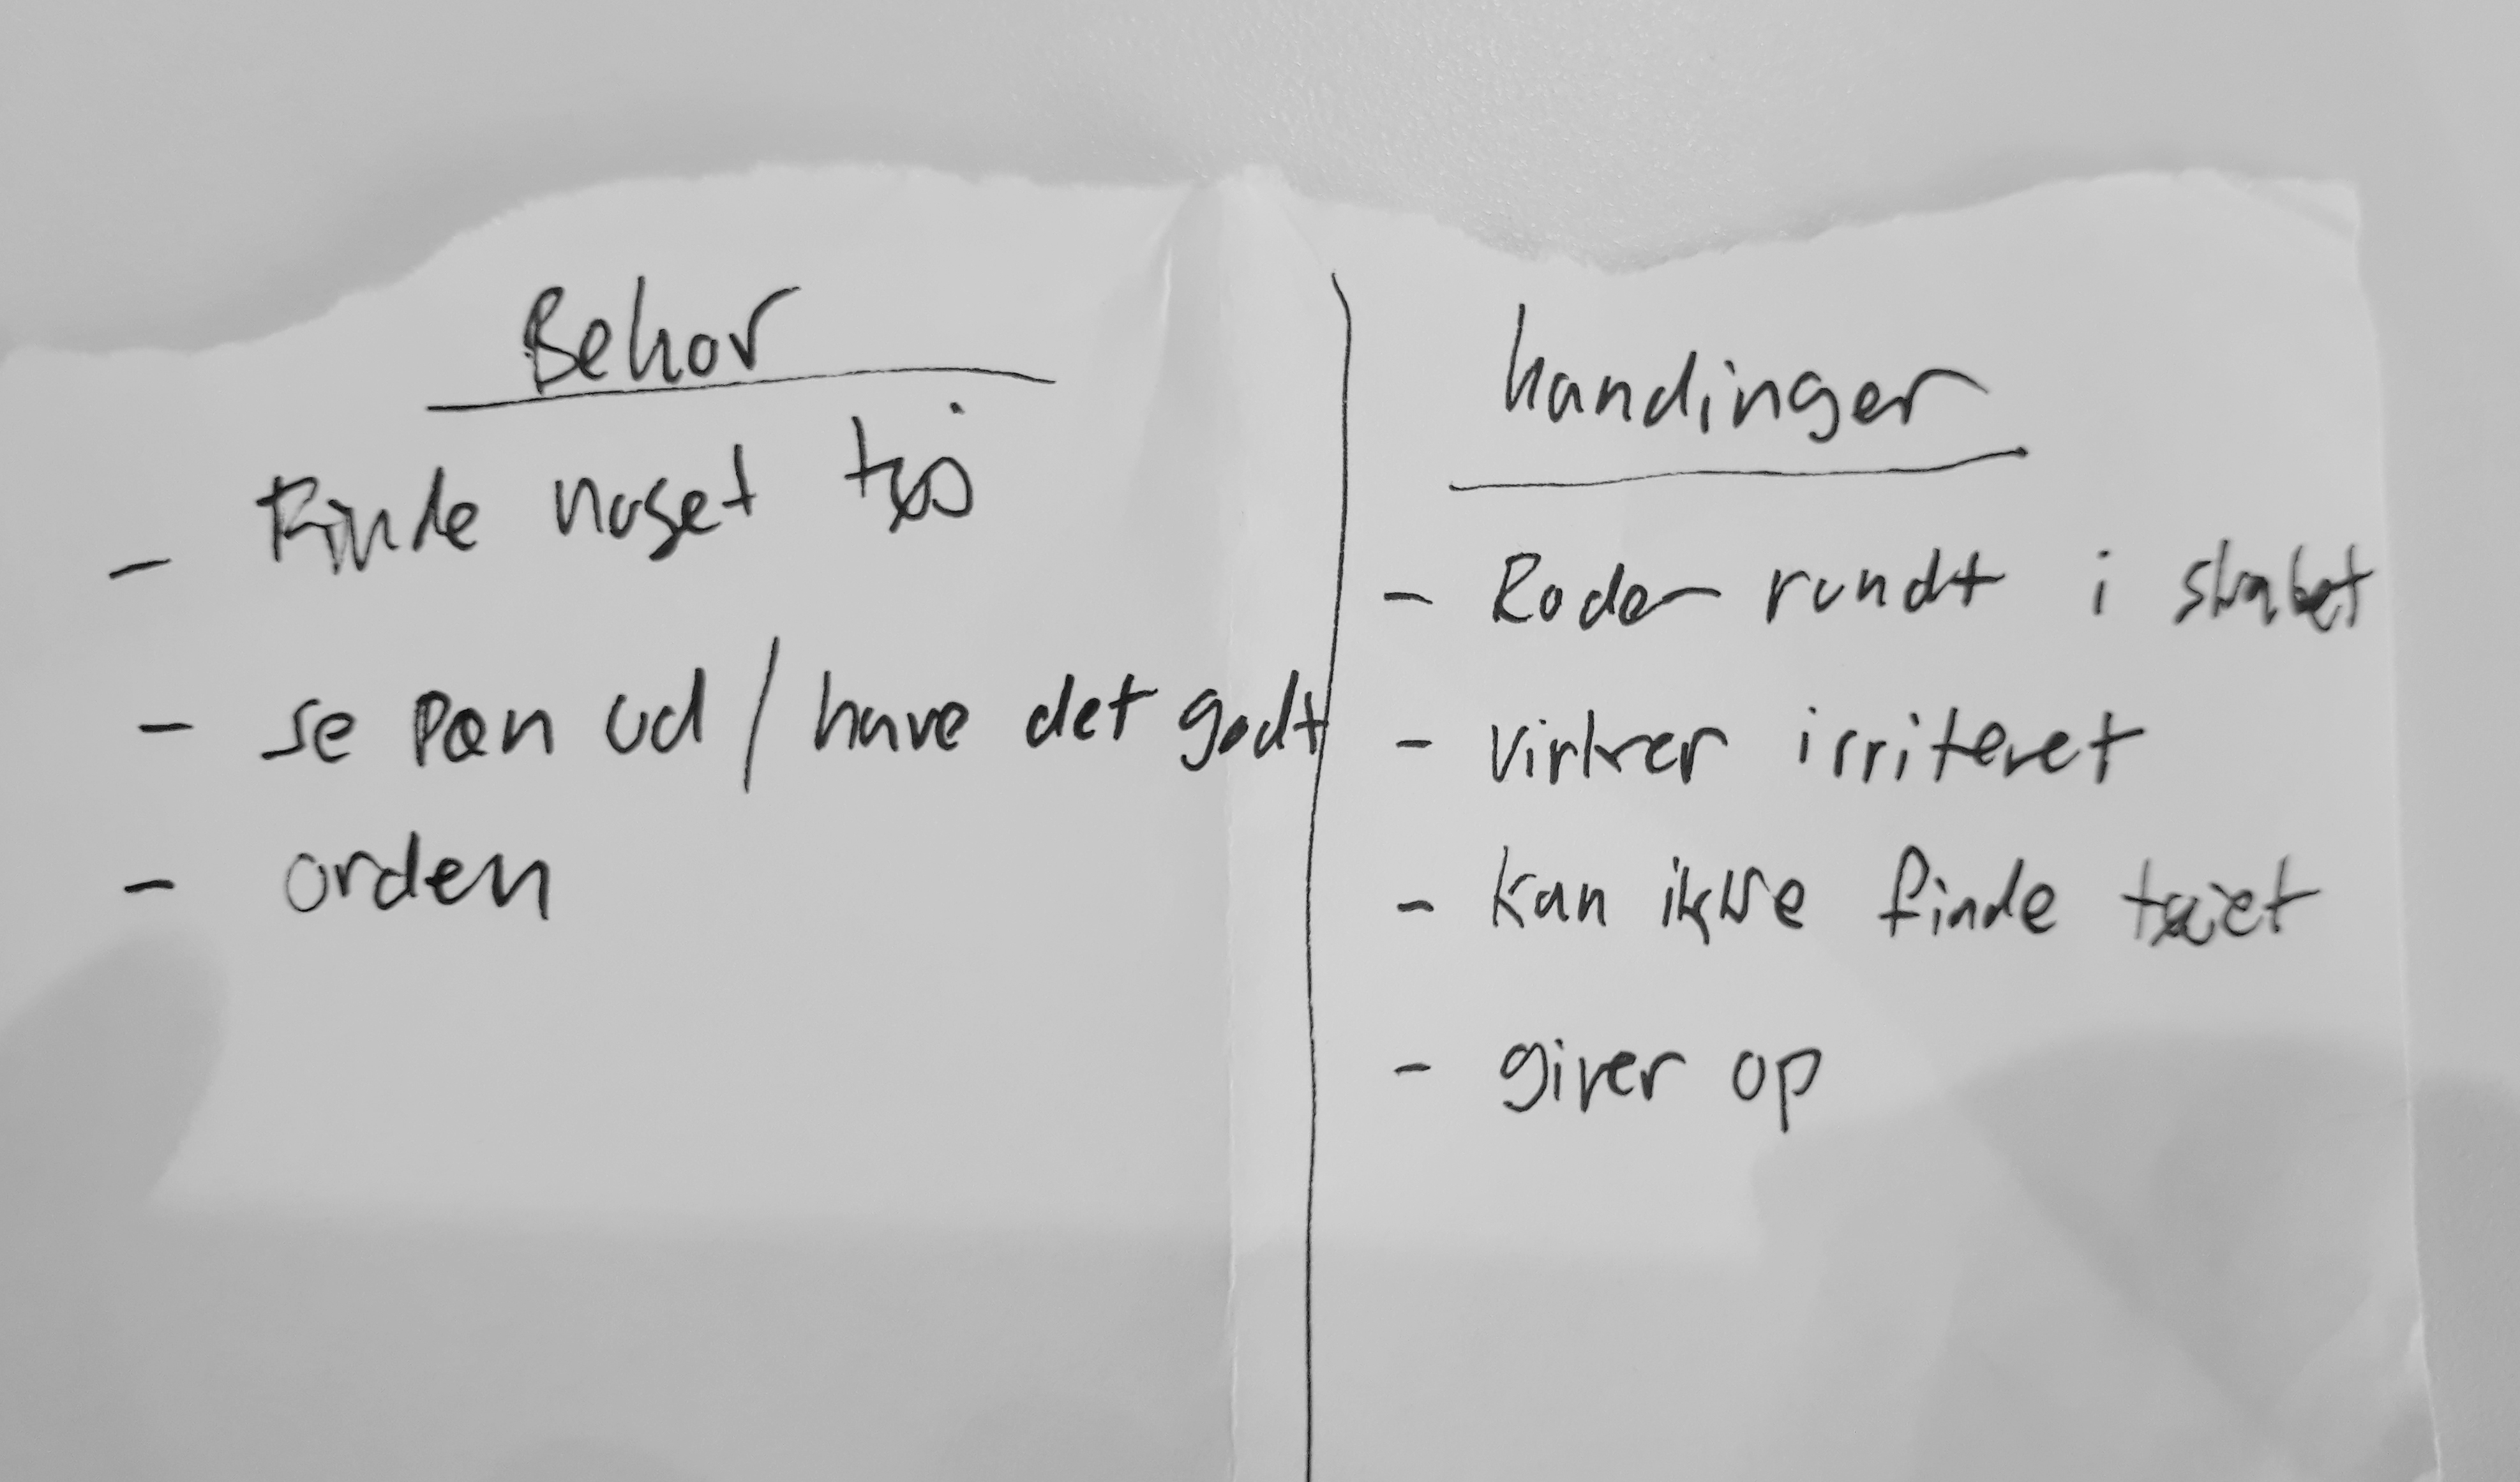 Behov
- Finde noget tøj
- se pæn ud / have det godt
- orden
handinger
- Roder rundt i skabet
- virker irriteret
- kan ikke finde tøjet
- giver op